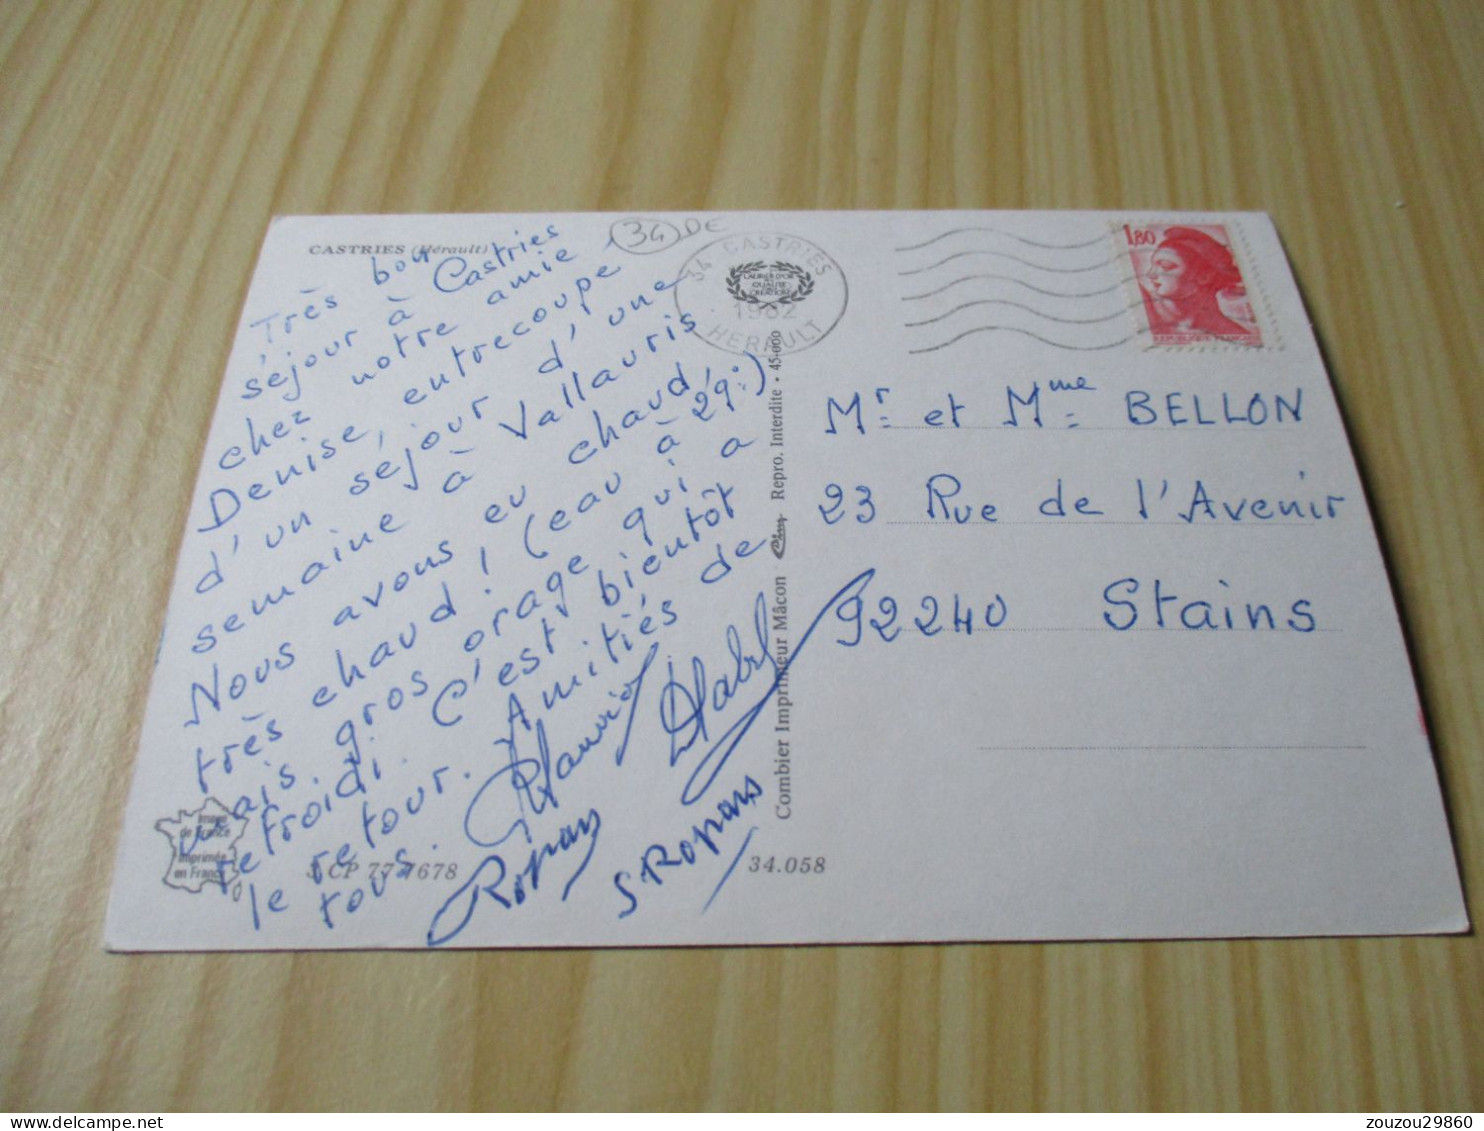 CASTRIES (Hérault)
34 DE
Très bon
séjour à Castries
chez notre amie
Denise, entrecoupé
d'un séjour d'une
semaine à Vallauris
Nous avons eu chaud,
très chaud ! (eau à 29°)
mais gros orage qui a
refroidi. C'est bientôt
le retour. Amitiés de
tous.
Ropars
S Ropars
Image
de France
imprimée
en France
3 CP 77 7678
34.058
Combier Imprimeur Mâcon Cim Repro. Interdite • 45-000
34 CASTRIES
LAURIER D'OR
QUALITE
CREATION
1982
HERAULT
1,80
REPUBLIQUE FRANÇAISE
Mr et Mme BELLON
23 Rue de l'Avenir
92240 Stains
zouzou29860